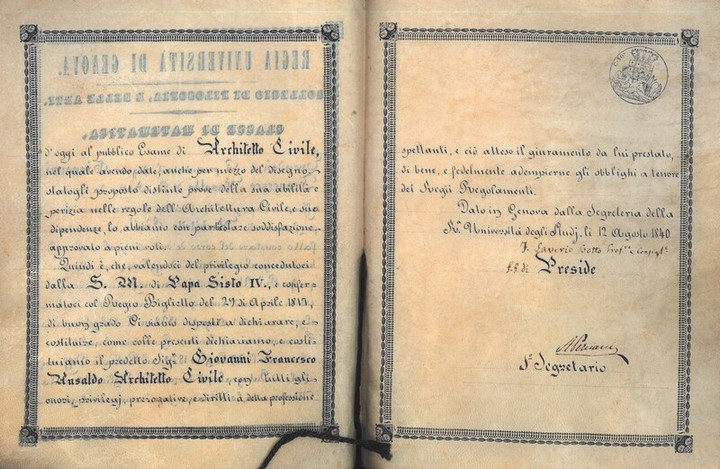 REGIA UNIVERSITÀ DI GENOVA.
COLLEGIO DI FILOSOFIA, E BELLE ARTI.
CLASSE DI MATEMATICA.
d'oggi al pubblico Esame di Architetto Civile,
nel quale avendo date, anche per mezzo del disegno
statogli proposto distinte prove della sua abilità e
perizia nelle regole dell'Architettura Civile, e sue
dipendenze, lo abbiamo con particolare soddisfazione
approvato a pieni voti.
Quindi è, che, valendoci del privilegio concedutoci
dalla S. M. di Papa Sisto IV., e confer-
matoci col Regio Biglietto del 29 di Aprile 1817,
di buon grado Ci siamo disposti a dichiarare, e
costituire, come colle presenti dichiariamo, e costi-
tuiamo il predetto Sigr. Giovanni Francesco
Rusaldo Architetto Civile, con tutti gli
onori, privilegj, prerogative, e diritti a detta professione
spettanti, e ciò atteso il giuramento da lui prestato,
di bene, e fedelmente adempierne gli obblighi a tenore
dei Regii Regolamenti.
Dato in Genova dalla Segreteria della
Ra. Università degli Studj, li 12 Agosto 1840
F. Saverio Botto Prof.
f.f. di Preside
Segretario